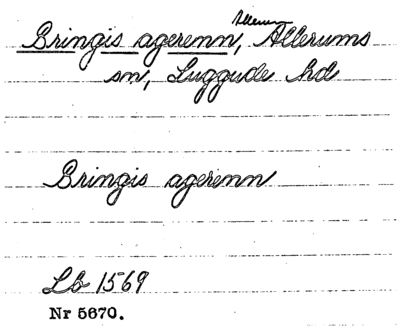 Allerum
Bringis agerenn, Allerums
sn, Luggude hd
Bringis agerenn
Lb 1569
Nr 5670.